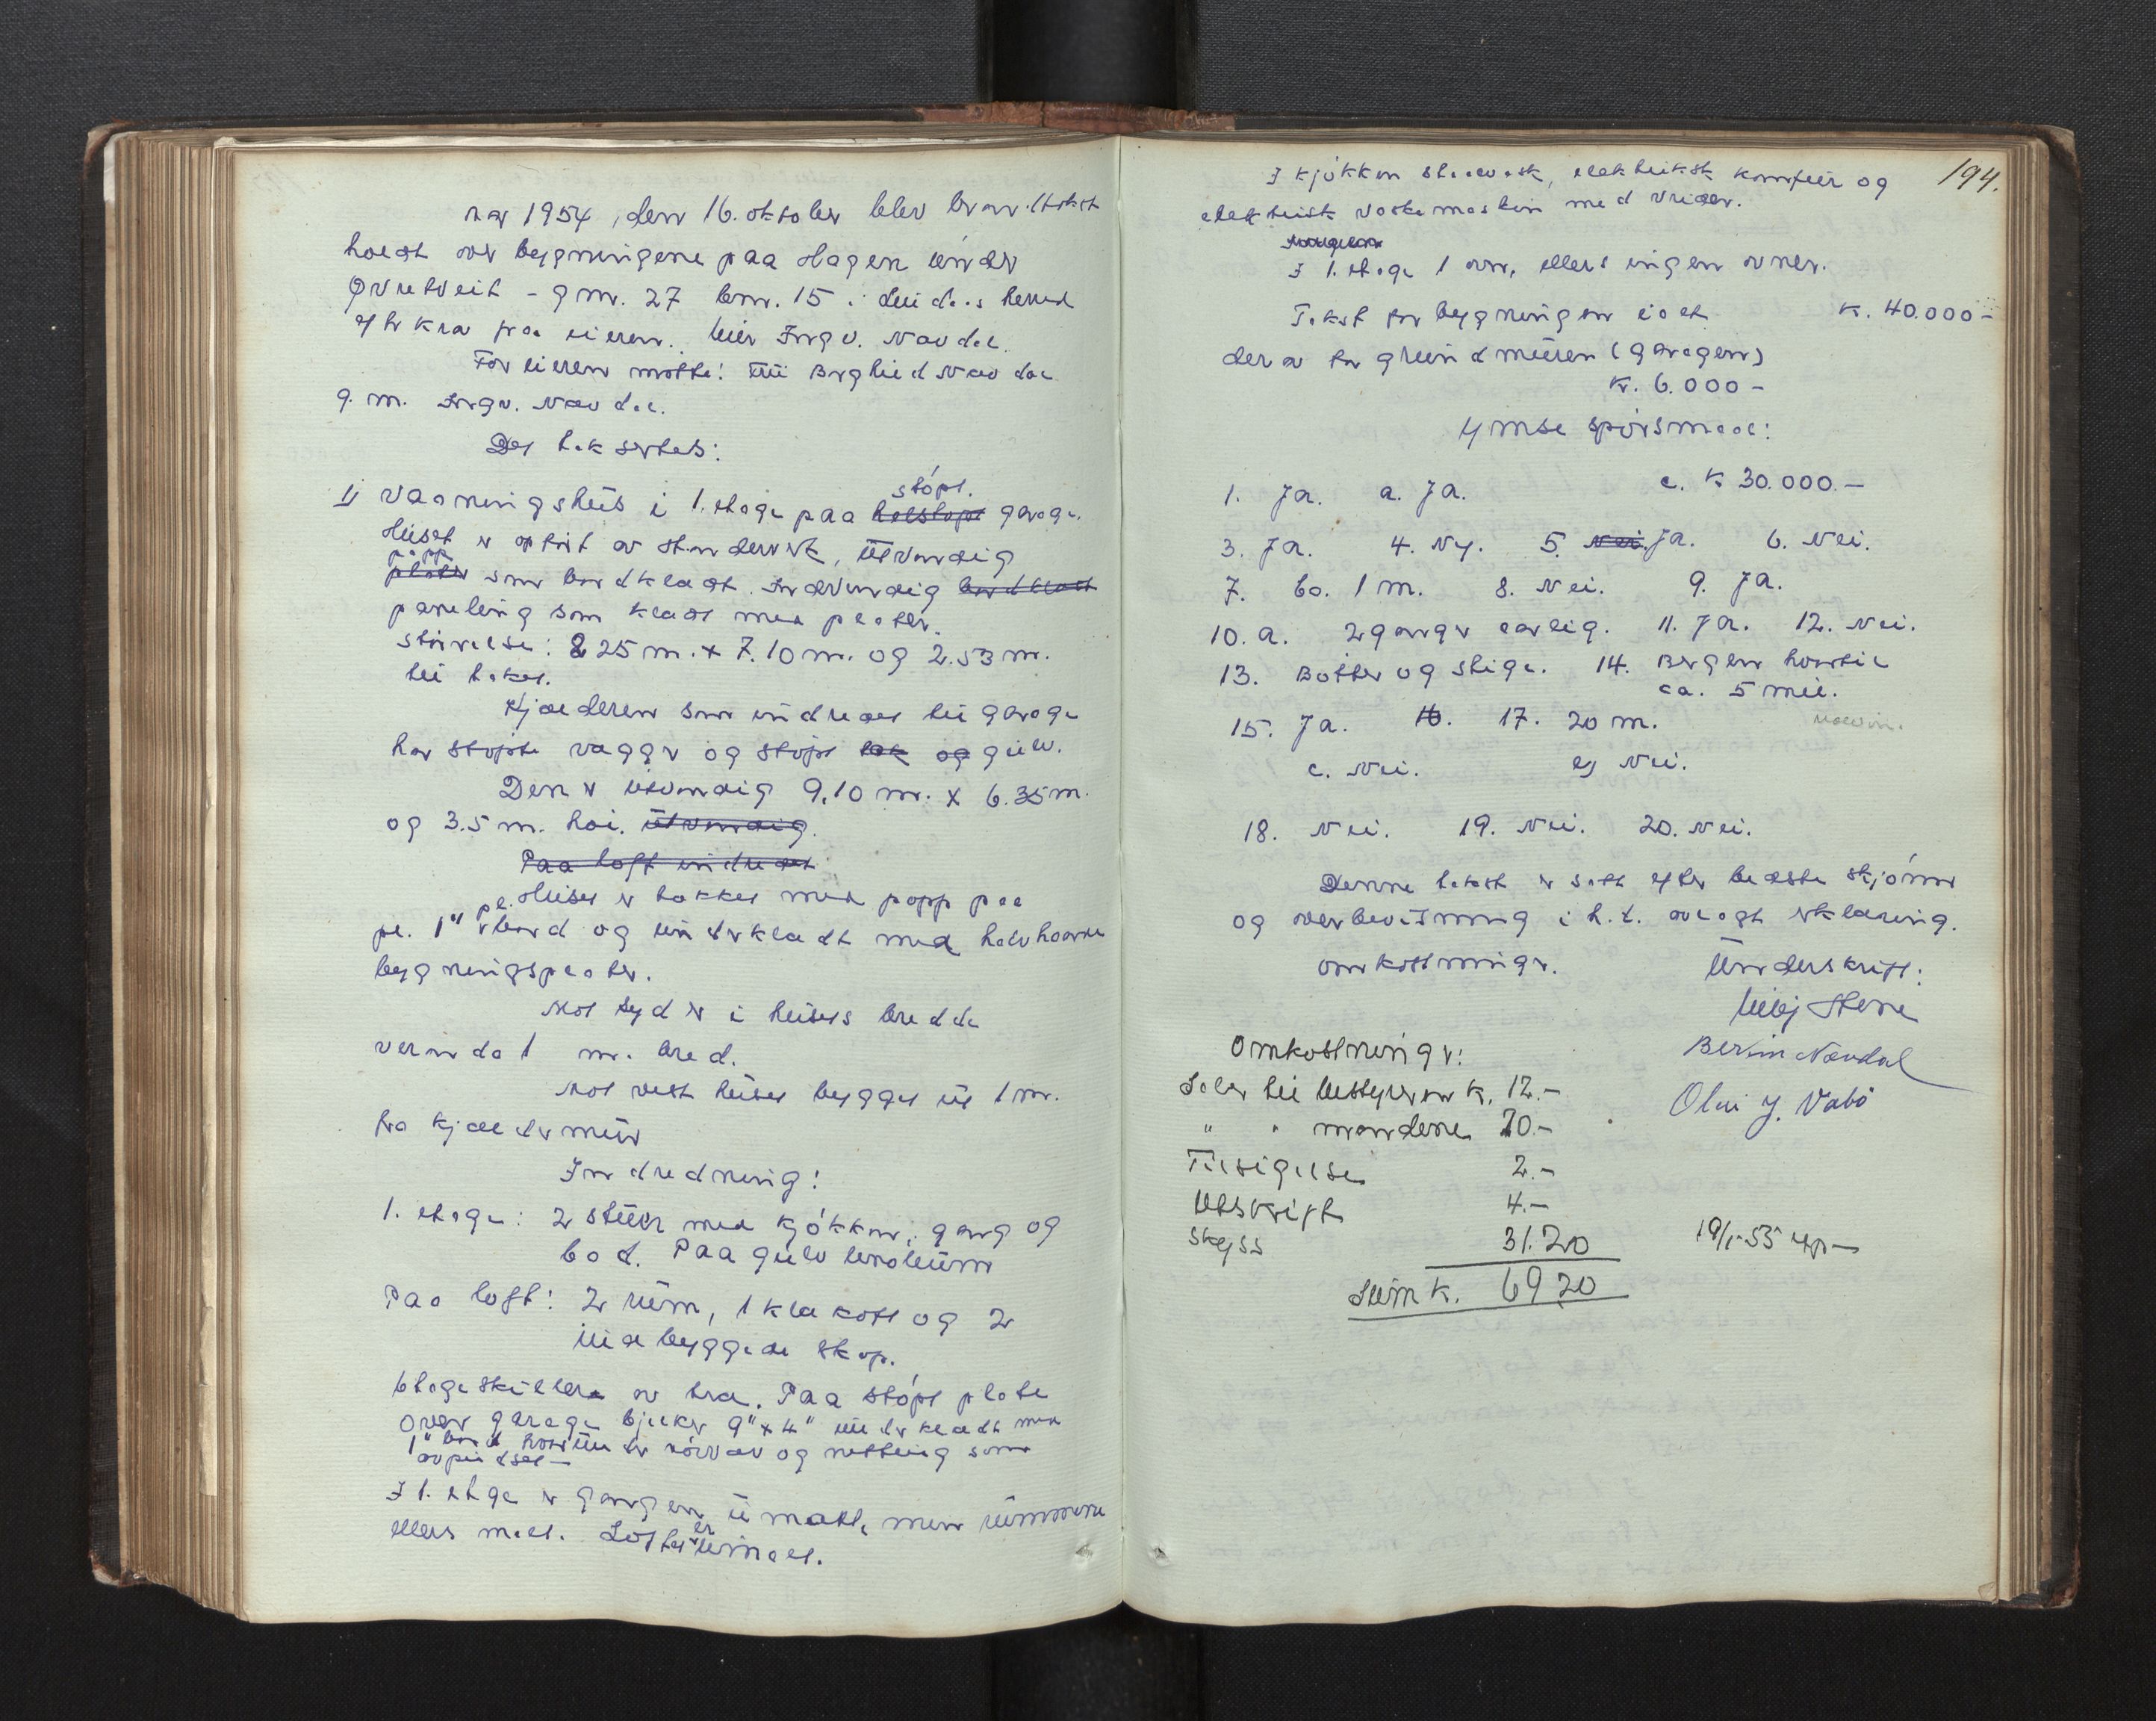 Aar 1954, den 16. oktober blev branntakst
holdt over bygningene paa Hagen under
Øvretveit - gnr. 27 bnr. 15 i herred
efter krav fra eieren. Ingv. Navdal.
For eieren møtte: Borghild Navdal
g. m. Ingv. Navdal.
Der taksertes:
1) Vaaningshus i 1. etage paa helstøpt støpt. garage.
Huset er opført av standerverk, utvendig
plater papp som bordkladt. Indvendig bordkladt
paneling som kladt med plater.
Størrelse: 8 25 m. x 7.10 m. og 2.53 m.
til taket.
Kjælderen som indredet til garage
har støpte vægger og støpt tak og gulv.
Den er utvendig 9.10 m. x 6.35 m.
og 3.5 m. høi. utvendig.
Paa loft indredet
Huset er tækket med papp paa
pl. 1" pl. bord og underkladt med halvhaarde
bygningsplater.
Mot syd er i husets bredde
veranda 1 m. bred.
Mot vest huset bygget ut 1 m.
fra kjældermur
Indredning:
1. etage: 2 stuer med kjøkken, gang og
bod. Paa gulv linoleum
Paa loft: 2 rum, 1 klækott og 2
indebyggede skap.
Etageskillere av træ. Paa støpt plate
over garage bjelker 9" x 4" underkladt med
1" bord, herunder rørvæv og netting som
avpudset -
I 1. etage er gangen umalt, men rummene
ellers malt. Loftet er umalt.
194.
I kjøkken staalvask, elektrisk komfür og
elektrisk vaskemaskin med vrider.
I 1. etage 1 ovn, ellers ingen ovner.
Takst for bygningen ialt kr. 40.000-
derav for grundmuren (garagen)
kr. 6.000-
Ymse spørsmaal:
1. Ja. a. Ja. c. kr 30.000.-
3. Ja. 4. Ny. 5. Nei. Ja. 6. Nei.
7. 1 m. 8. Nei. 9. Ja.
10. a. 2 ganger aarlig. 11. Ja. 12. Nei.
13. Bøtter og stige. 14. Bergen
ca. 5 mil.
15. Ja. 16. 17. 20 m.
c. Nei. e) Nei.
18. Nei. 19. Nei. 20. Nei.
Denne takst er satt efter bedste skjønn
og overbevisning i h.t. avlagt erklæring.
omkostninger. Underskrift:
Berin Navdal
Olai J. Vabø
Omkostninger:
Salær til bestyreren kr. 12.-
" " mændene 20.-
Tilsigelse 2.-
Utskrift 4.-
Skyss 31.20
Sum kr. 69 20